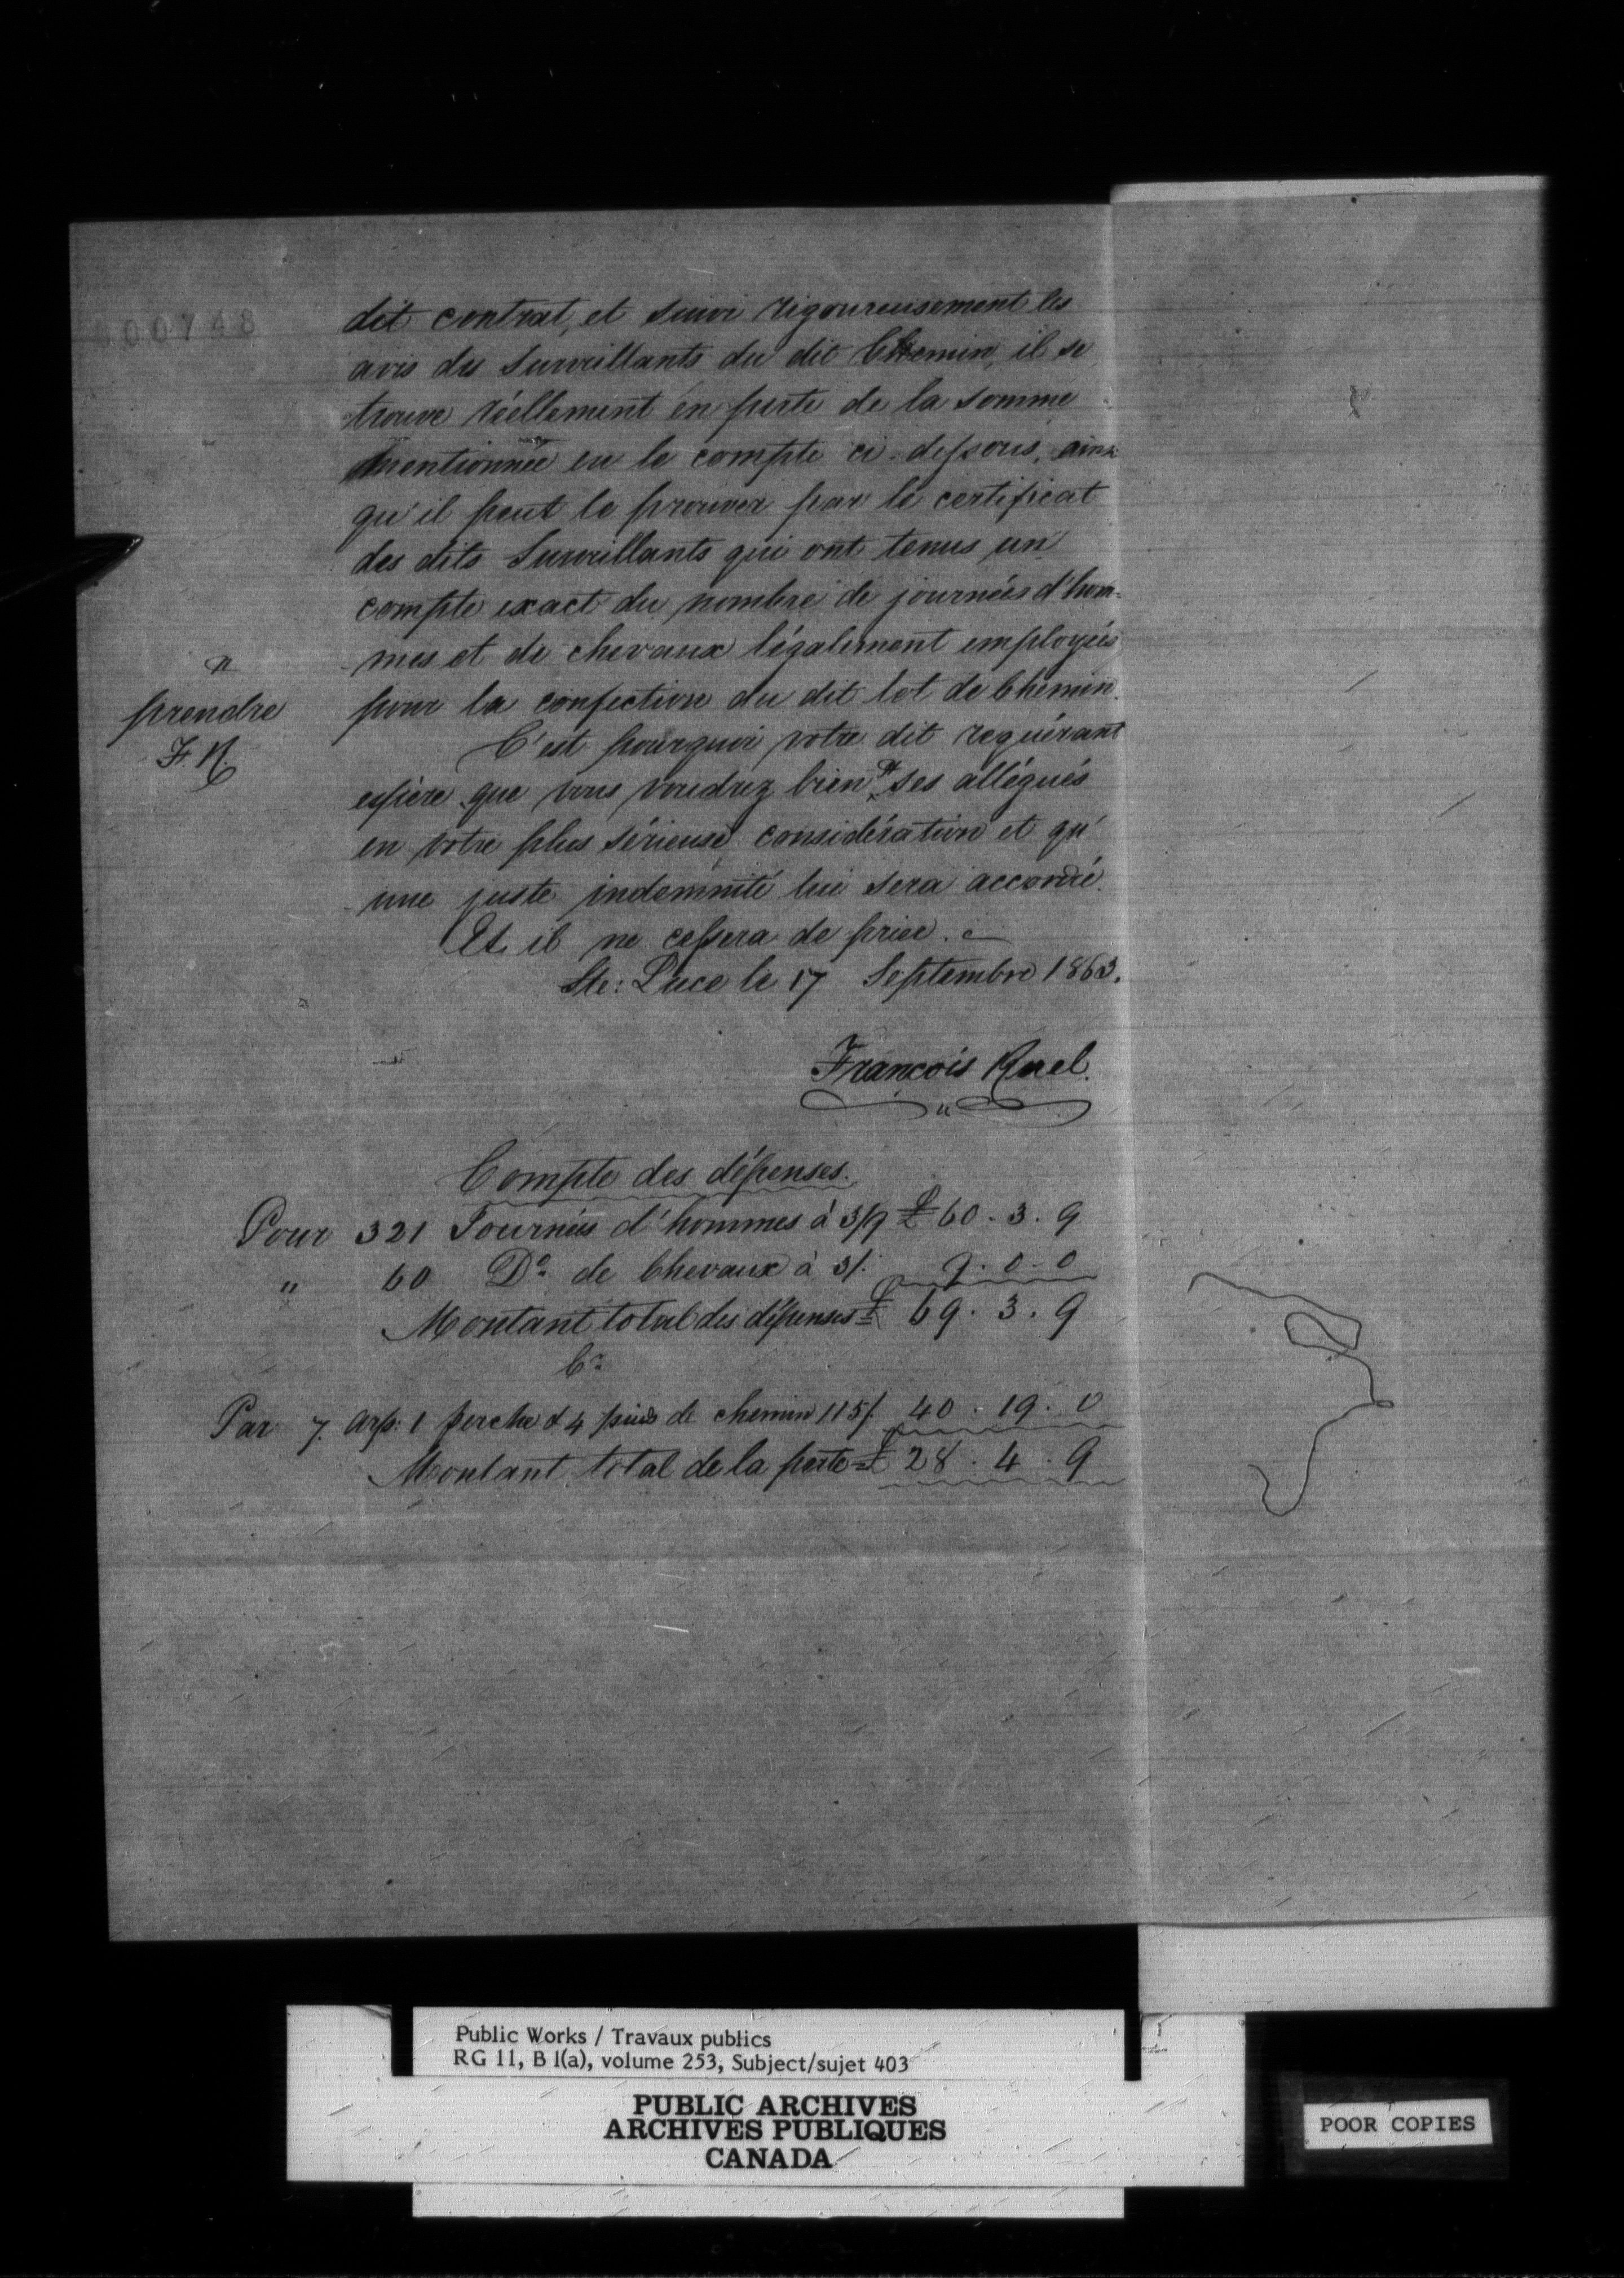 000748
dit contrat, et suivi rigoureusement les
avis des Surveillants du dit Chemin, il se
trouve réellement en perte de la somme
mentionnée en le compte ci-dessous, ainsi
qu'il peut le prouver par le certificat
des dits Surveillants qui ont tenus un
compte exact du nombre de journées d'hom=
mes et de chevaux légalement employées
pour la confection du dit lot de Chemin.
prendre
F. R.
C'est pourquoi votre dit requérant
espère que vous voudrez bien ses allégués
en votre plus sérieuse considération et qu'
une juste indemnité lui sera accordé.
Et il ne cessera de prier.
Ste: Luce le 17 Septembre 1863.
François Ruel.
Compte des dépenses.
Pour 321 Journées d'hommes à 3/9 £ 60 . 3 . 9
" 60 Do de Chevaux à 3/. 9 . 0 . 0
Montant total des dépenses = £ 69 . 3 . 9
Cr
Par 7. Arp: 1 perche & 4 pieds de chemin 115/. 40 . 19 . 0
Montant total de la perte = £ 28 . 4 . 9
Public Works / Travaux publics
RG 11, B 1(a), volume 253, Subject/sujet 403
PUBLIC ARCHIVES
ARCHIVES PUBLIQUES
CANADA
POOR COPIES